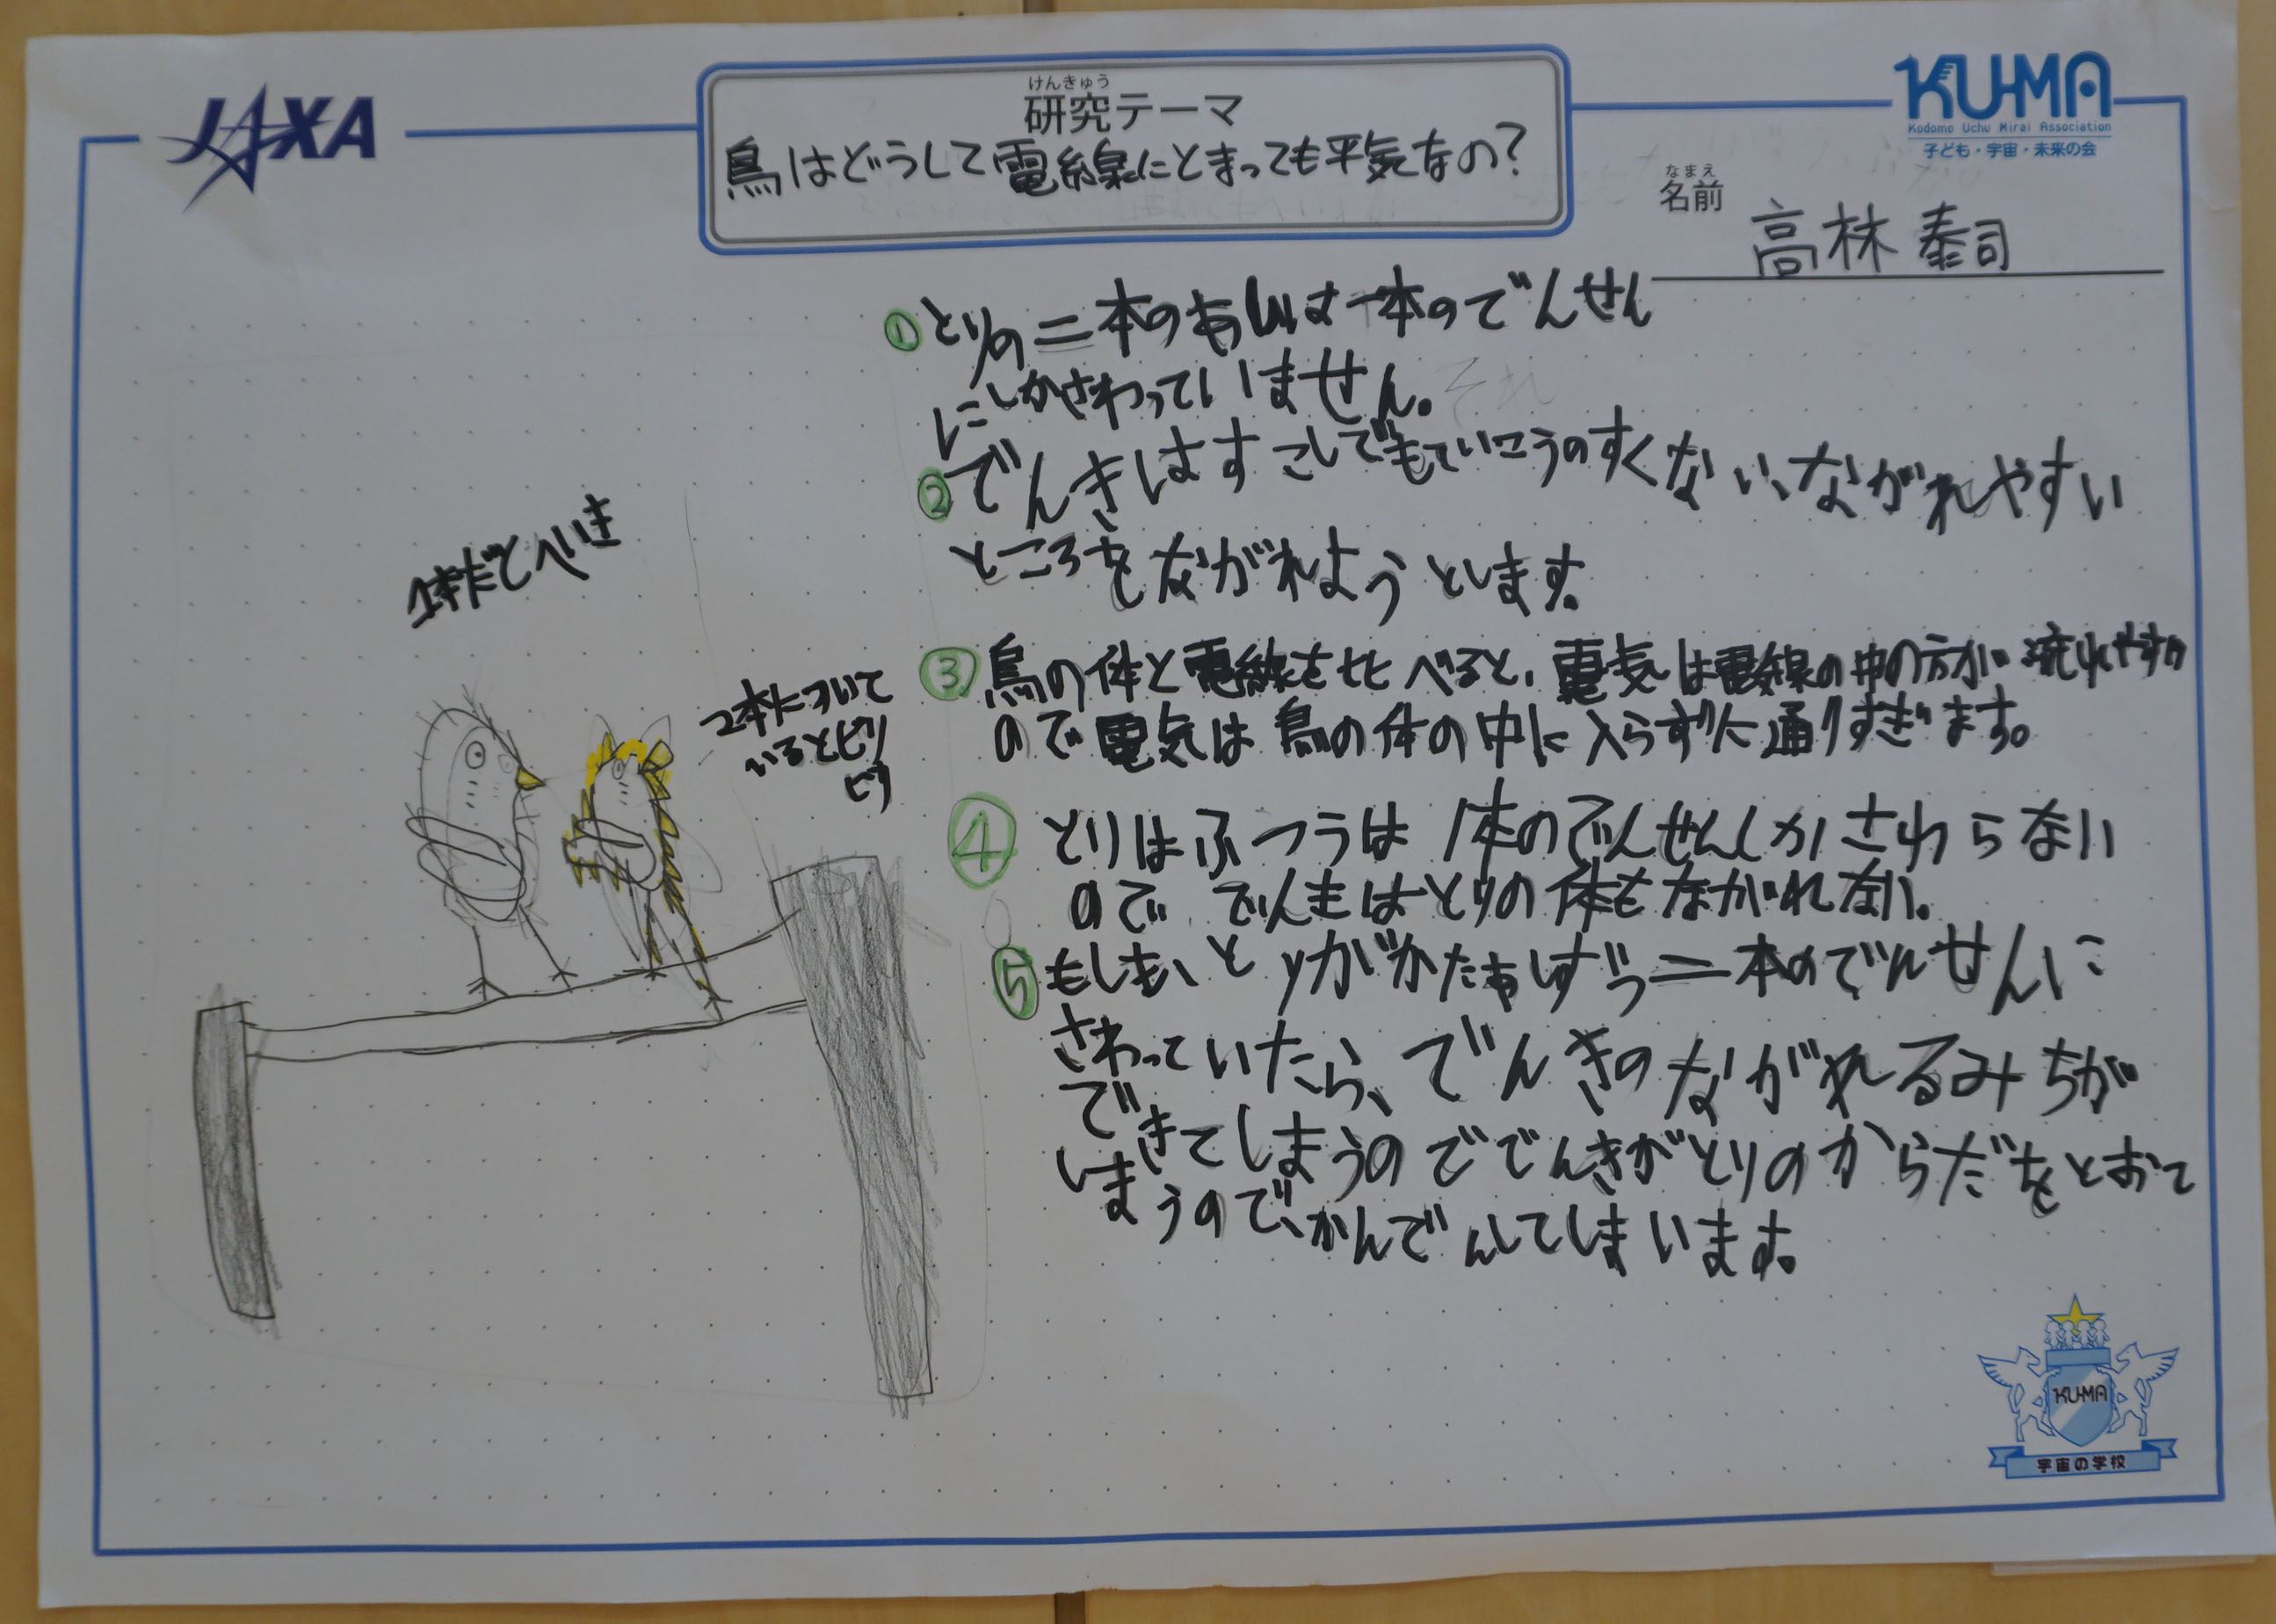 JAXA
けんきゅう
研究テーマ
鳥はどうして電線にとまっても平気なの?
KU-MA
Kodomo Uchu Mirai Association
子ども・宇宙・未来の会
なまえ
名前
高林泰司
①とりの二本のあしは一本のでんせん
にしかさわっていません。
それ
②でんきはすこしでもていこうのすくない、ながれやすい
ところをながれようとします。
③鳥の体と電線を比べると、電気は電線の中の方が流れやすい
ので電気は鳥の体の中に入らずに通りすぎます。
④とりはふつうは1本のでんせんしかさわらない
のででんきはとりの体をながれない。
⑤もしも、とりがかたあしずつ二本のでんせんに
さわっていたら、でんきのながれるみちが
できてしまうのででんきがとりのからだをとおて
しまうので、かんでんしてしまいます。
1本だとへいき
2本について
いるとビリ
ビリ
KU-MA
宇宙の学校